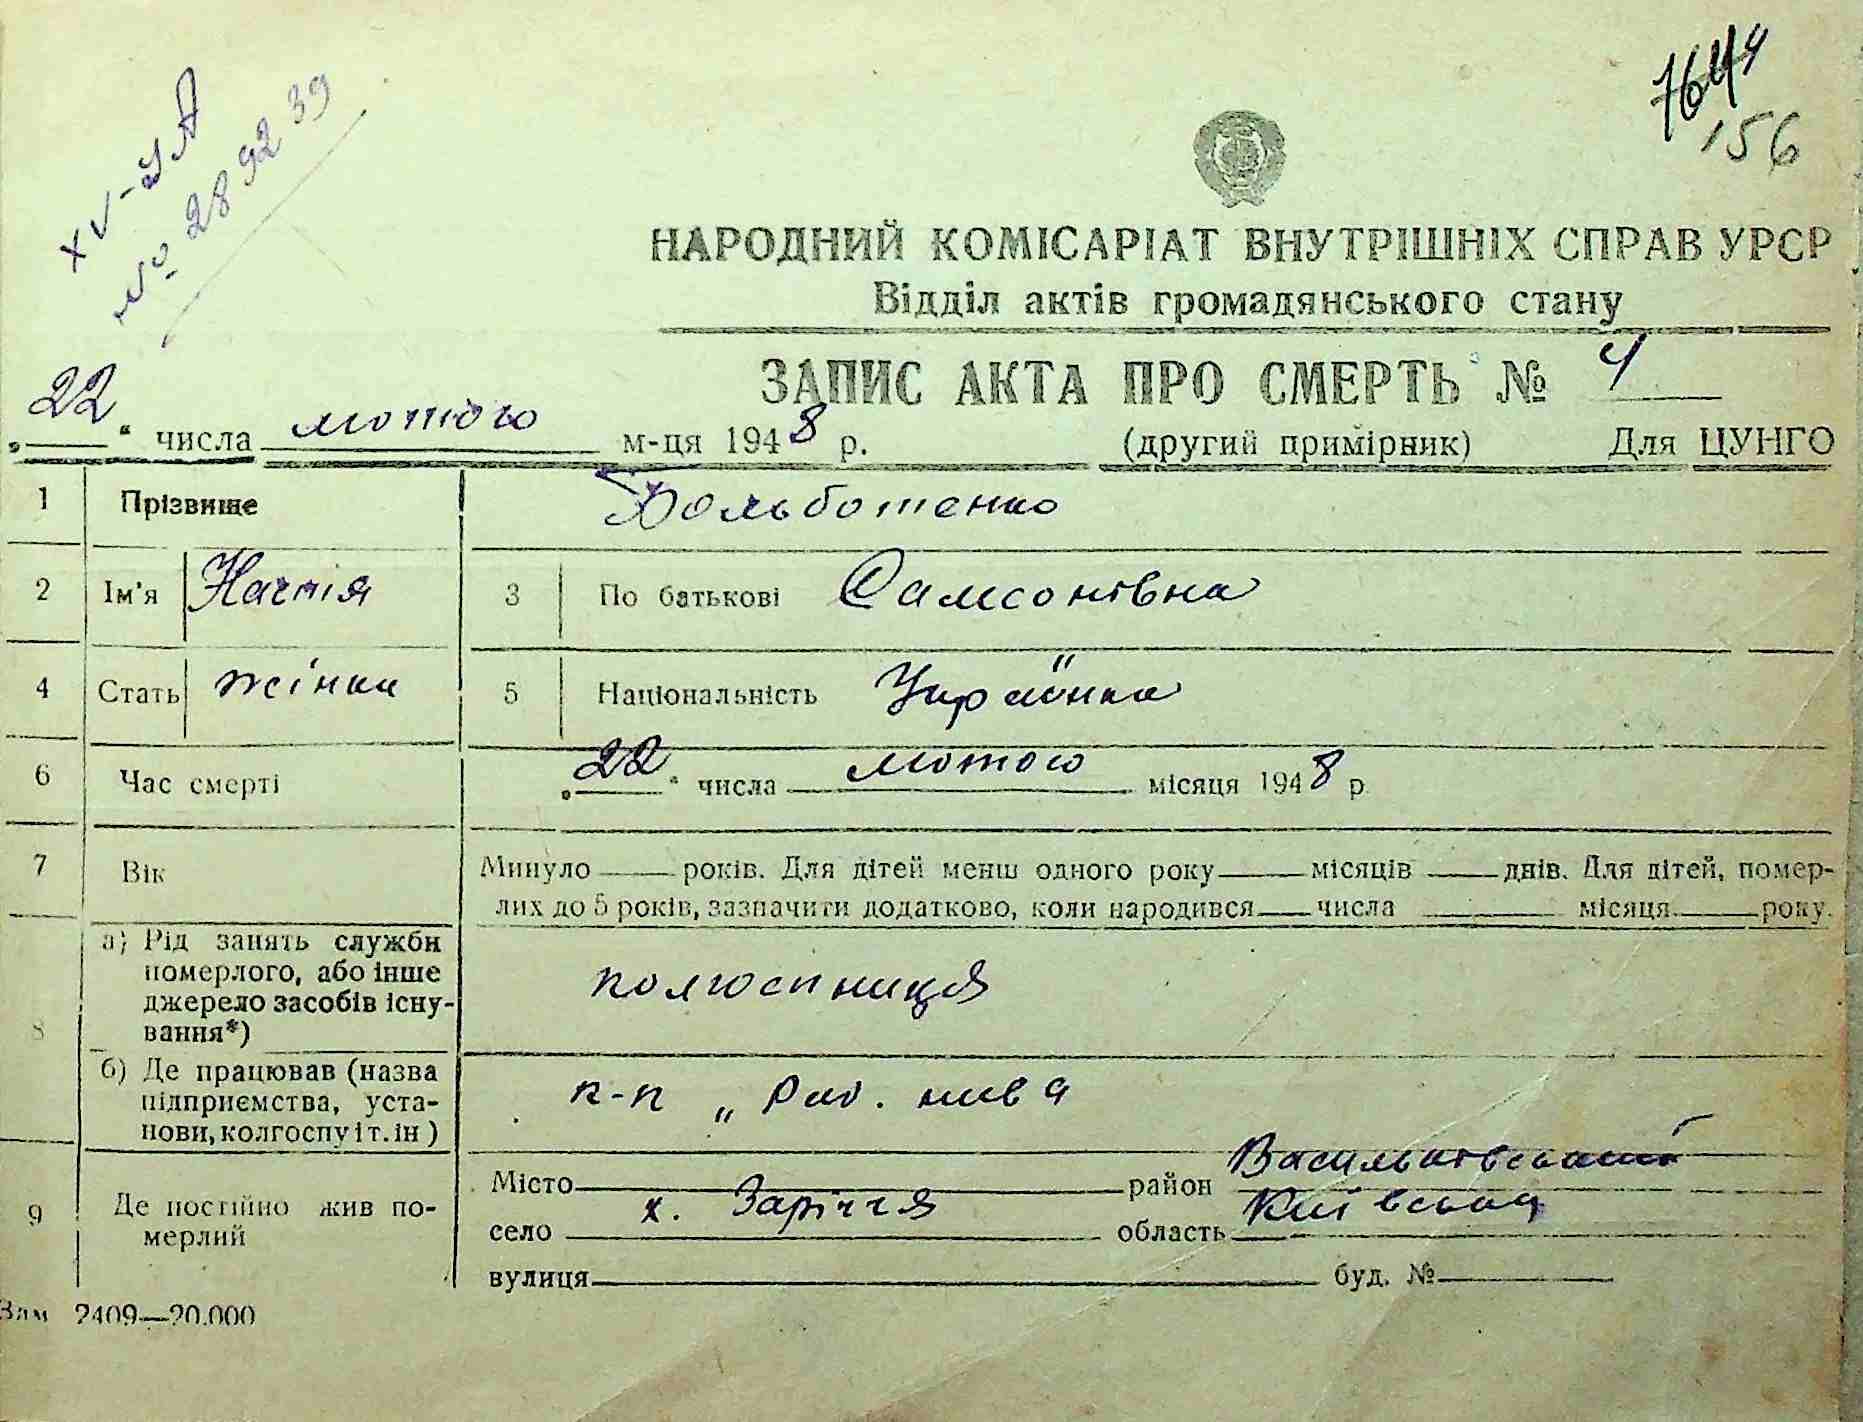 XV-УА
№ 289239
7644
156
НАРОДНИЙ КОМІСАРІАТ ВНУТРІШНІХ СПРАВ УРСР
Відділ актів громадянського стану
ЗАПИС АКТА ПРО СМЕРТЬ № 4
„22“ числа лютого м-ця 1948 р. (другий примірник) Для ЦУНГО
1 Прізвище Больботенко
2 Ім'я Настія 3 По батькові Самсонівна
4 Стать жінка 5 Національність Українка
6 Час смерті „22“ числа лютого місяця 1948 р.
7 Вік Минуло ___ років. Для дітей менш одного року ___ місяців ___ днів. Для дітей, помер-
лих до 5 років, зазначити додатково, коли народився ___ числа ___ місяця ___ року.
8 а) Рід занять служби
померлого, або інше
джерело засобів існу-
вання*)
колгоспниця
б) Де працював (назва
підприємства, уста-
нови, колгоспу і т. ін)
к-п „ нива
9 Де постійно жив по-
мерлий
Місто ___ район Васильківський
село х. Заріччя область Київська
вулиця ___ буд. № ___
Зам 2409—20.000